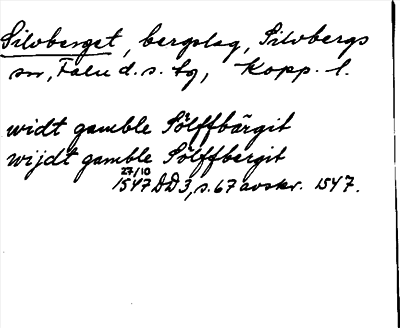 Silvberget, bergslag, Silvbergs
sn, Falu d. s. tg, Kopp. l.
widt gamble Sölffbärgit
wijdt gamble Sölffbergit
27/10
1547 DD3, s. 67 avskr. 1547.